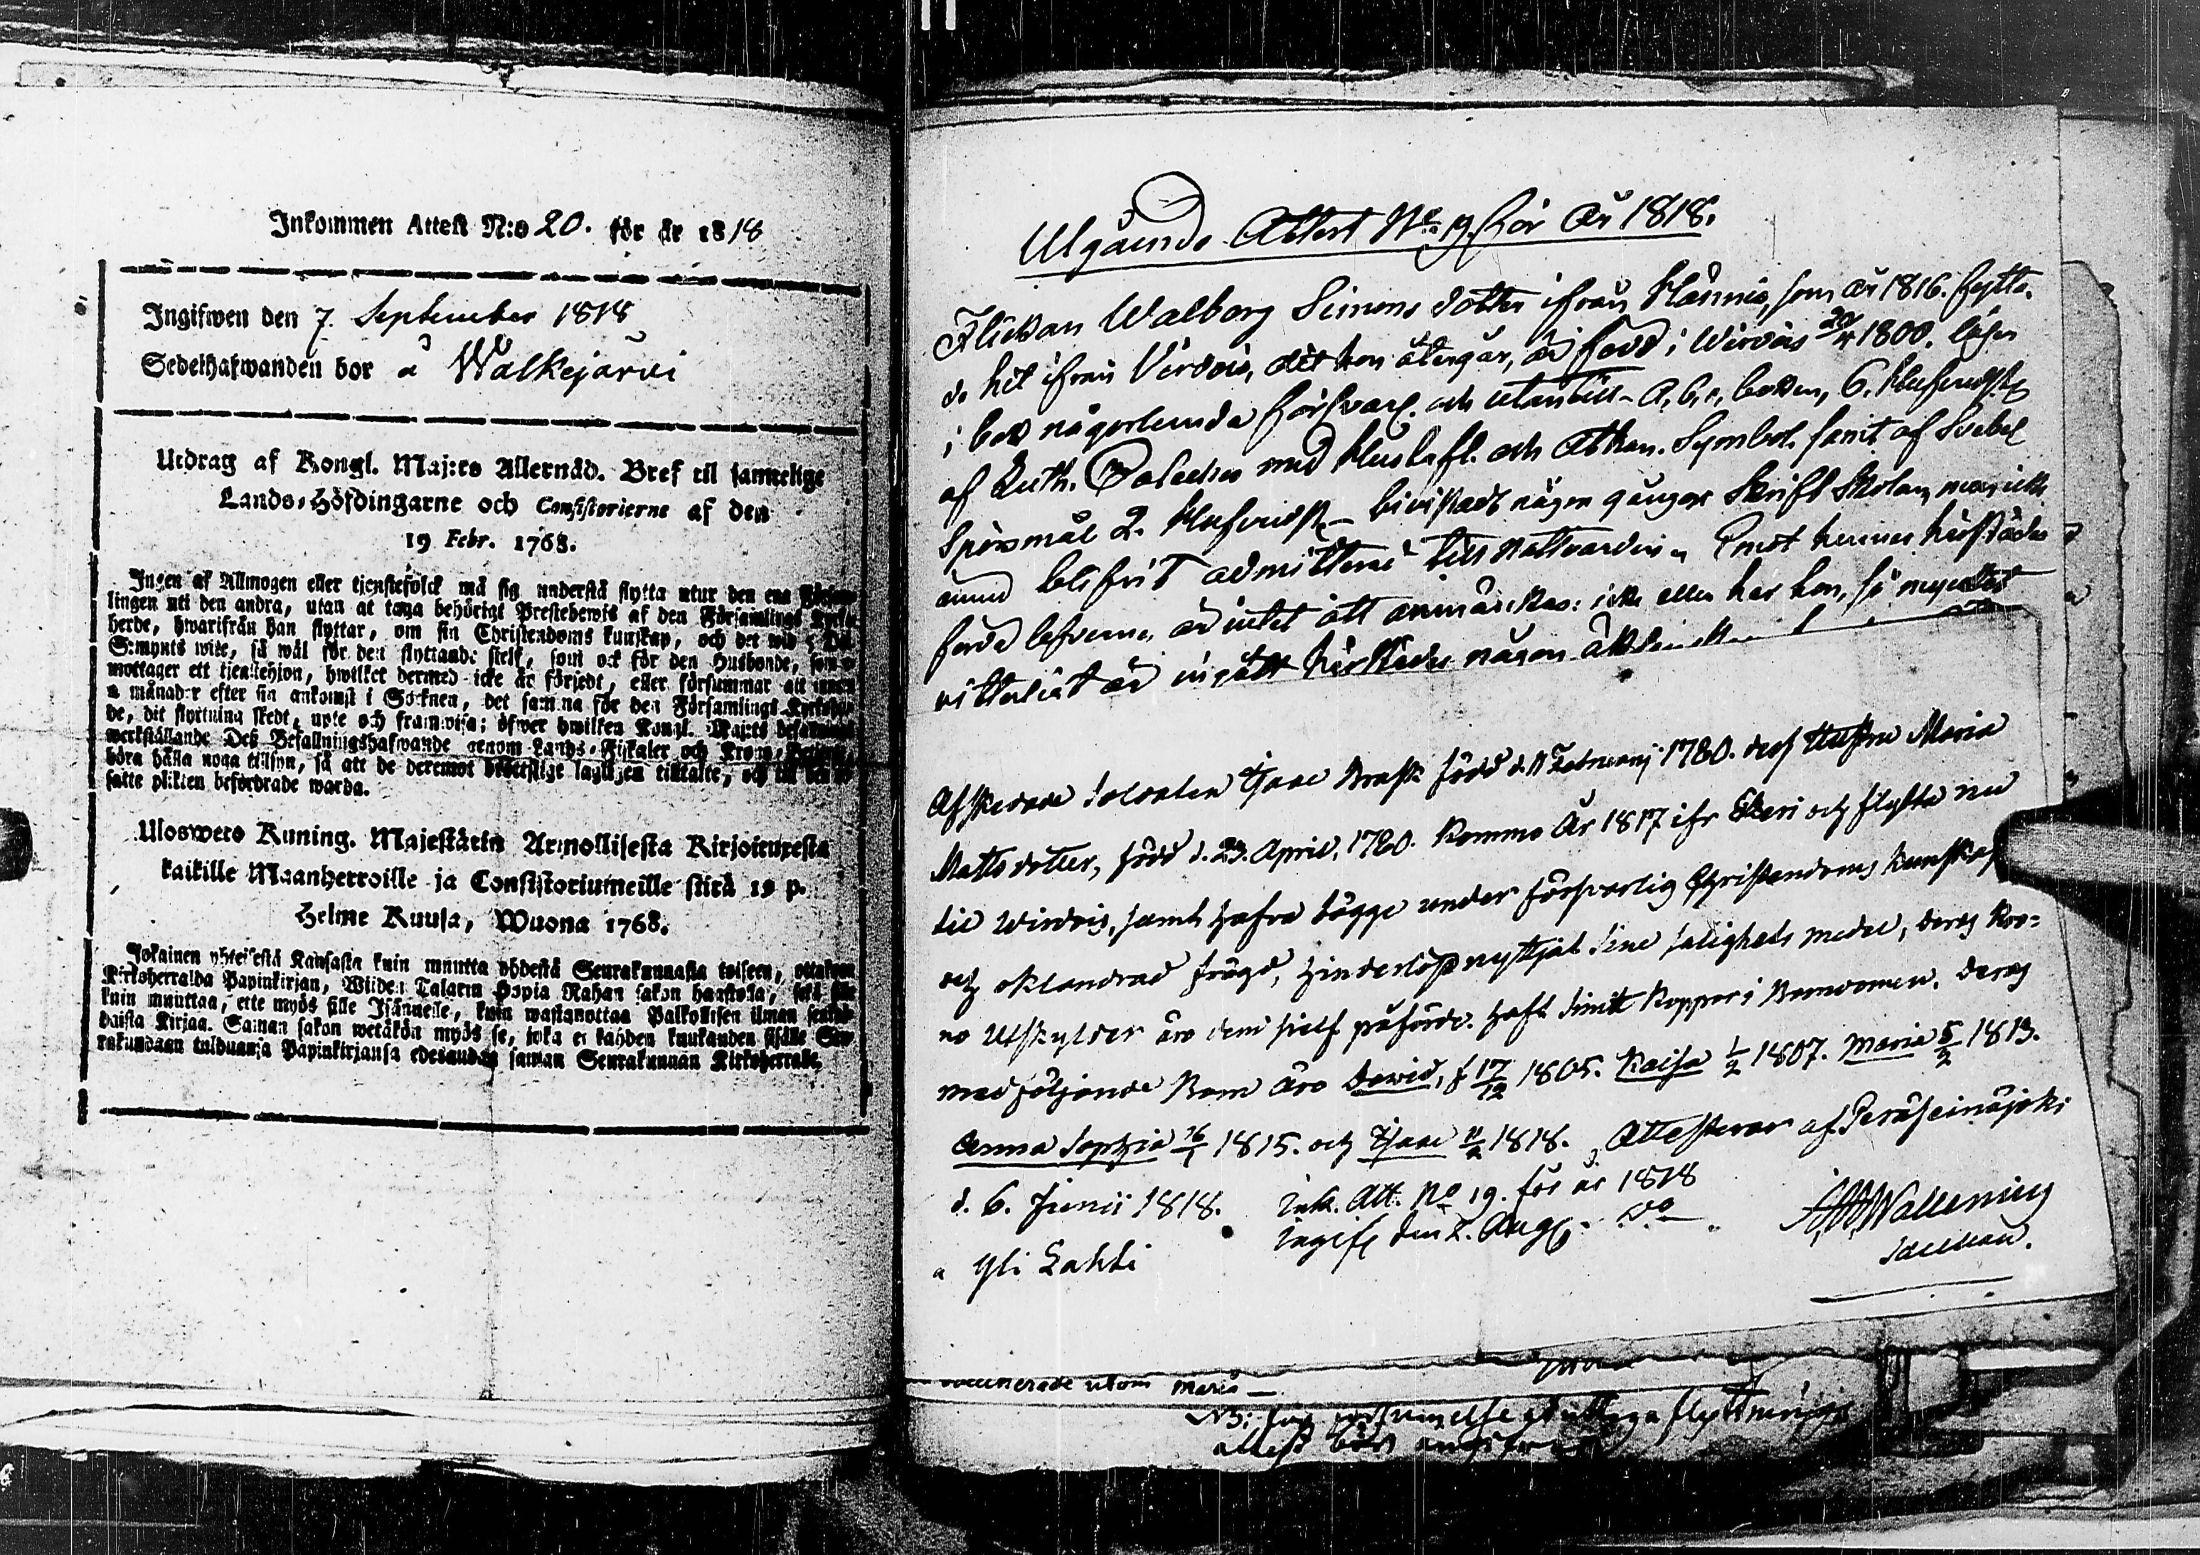 Inkommen Attest N:o 20. för år 1818
Ingifwen den 7. September 1818
Sedelhafwanden bor å Walkejärwi
Utdrag af Kongl. Maj:ts Allernåd. Bref til samtelige
Lands-Höfdingarne och Consistorierne af den
19 Febr. 1768.
Ingen af Allmogen eller tjenstefolck må sig understå flytta utur den ena
lingen uti den andra, utan at taga behörigt Prestebewis af den Församlings
herde, hwarifrån han flyttar, om sin Christendoms kunskap, och det wid
S:mynts wite, så wäl för den flyttande sielf, som ock för den Husbonde,
mottager ett tjenstehjon, hwilket dermed icke är försedt, eller försummar att innan
månader efter sin ankomst i Socknen, det samma för den Församlings
de, dit flyttning skedt, upte och framwisa; öfwer hwilken Kongl. Maj:ts
werkställande Deß Befallningshafwande genom Lands-Fiskaler och
böra hålla noga tillsyn, så att de deremot lagligen tilltalte, och
satte plikten befordrade warda.
Uloswets Kuning. Majestätin Armollisesta Kirjoituxesta
kaikille Maanherroille ja Consistoriumeille siitä 19 p.
Helme Kuusa, Wuona 1768.
Jokainen yhteisestä Kansasta kuin muutta yhdestä Seurakunnasta toiseen,
Kirkoherralda Papinkirjan, Wiiden Talarin Hopia Rahan sakon haastolla,
kuin muuttaa, ette myös sille Isännelle, kuin wastanottaa Palkollisen ilman
daista Kirjaa. Saman sakon wetäkön myös se, joka ei kahden kuukauden sisälle
rakundaan tulduanja Papinkirjansa edesanda saman Seurakunnan Kirkoherralle.
Utgående Attest No 9 för År 1818.
Flickan Walborg Simons dotter ifrån som år 1816. flytta
de hit ifrån Virdois, dit hon återgår, är född i Wirdois 1800. läser
i bok någorlunda försvarl. och utantill A, b, c, boken, 6. Hufvudst.
af Luth. Cateches med Hustafl. och Athan. Symbol. samt af Svebel
Spörsmål 2. Hufvudst. bivistadt någon gånger Skrift Skolan, men icke
ännu blifvit admitterad till Nattvarden. Emot hennes härstädes
förda lefverne är intet att anmärkas: icke eller har hon, så mycket
vitterligt är ingått härstädes någon
Afskedade Soldaten Isaac Brask född d. 11 Februarij 1780. des Hustru Maria
Matts dotter, född d. 23. April. 1780. Komma År 1817 ifr och flytta nu
til Wirdois, samt hafva bägge under försvarlig Christendoms kunskap
och oklandrad frägd, hinderlöst nyttjat sine salighets medel, deras Kro=
no Utskylder äro dem sielf påförde. haft smitt Koppor i Barndomen. deras
medföljande Barn äro David, f 17/12 1805. Kaisa 1/2 1807. Maria 5/2 1813.
Anna Sophia 16/1 1815. och Isaac 11/2 1818. Attesterar af Peräseinäjoki
d. 6. Junii 1818. Ink. Att. No 19. för år 1818
Ingifv. den 2. Aug. do
Wallenius
Sacellan.
a Yli Lahti
utom Maria
NB: flyttnings
attest